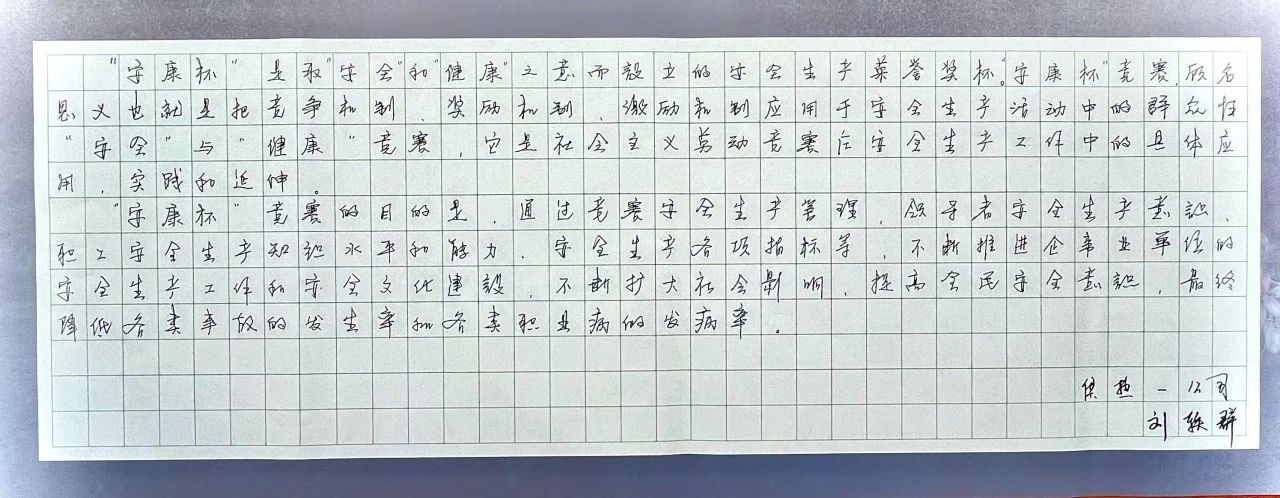 “安康杯”是取“安全”和“健康”之意而设立的安全生产荣誉奖杯。“安康杯”竞赛，顾名
思义也就是把竞争机制、奖励机制、激励机制应用于安全生产活动中的群众性
“安全”与“健康”竞赛，它是社会主义劳动竞赛在安全生产工作中的具体应
用、实践和延伸。
“安康杯”竞赛的目的是，通过竞赛安全生产管理、领导者安全生产意识、
职工安全生产知识水平和能力、安全生产各项指标等，不断推进企事业单位的
安全生产工作和安全文化建设，不断扩大社会影响，提高全民安全意识，最终
降低各类事故的发生率和各类职业病的发病率。
供热一公司
刘 群